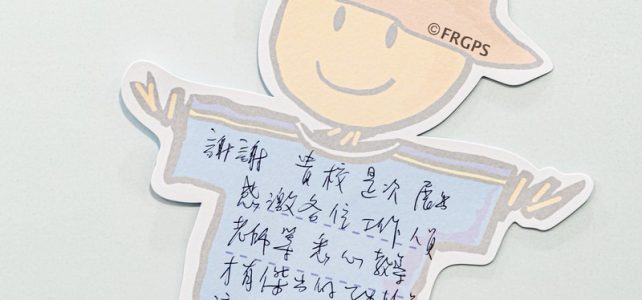 ©FRGPS
謝謝 貴校是次展
感激各位工作人員
老師等悉心教導
才有傑出的